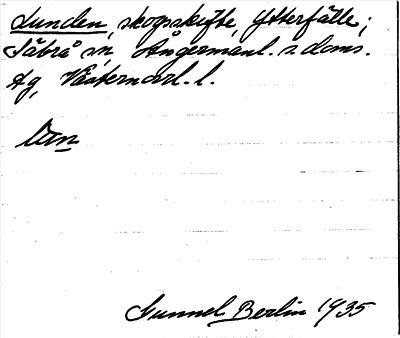 Lunden, skogsskifte, Ytterfälle;
Säbrå sn, Ångermanl. s. doms.
ag, Västernorrl. l.
Gunnel Berlin 1935